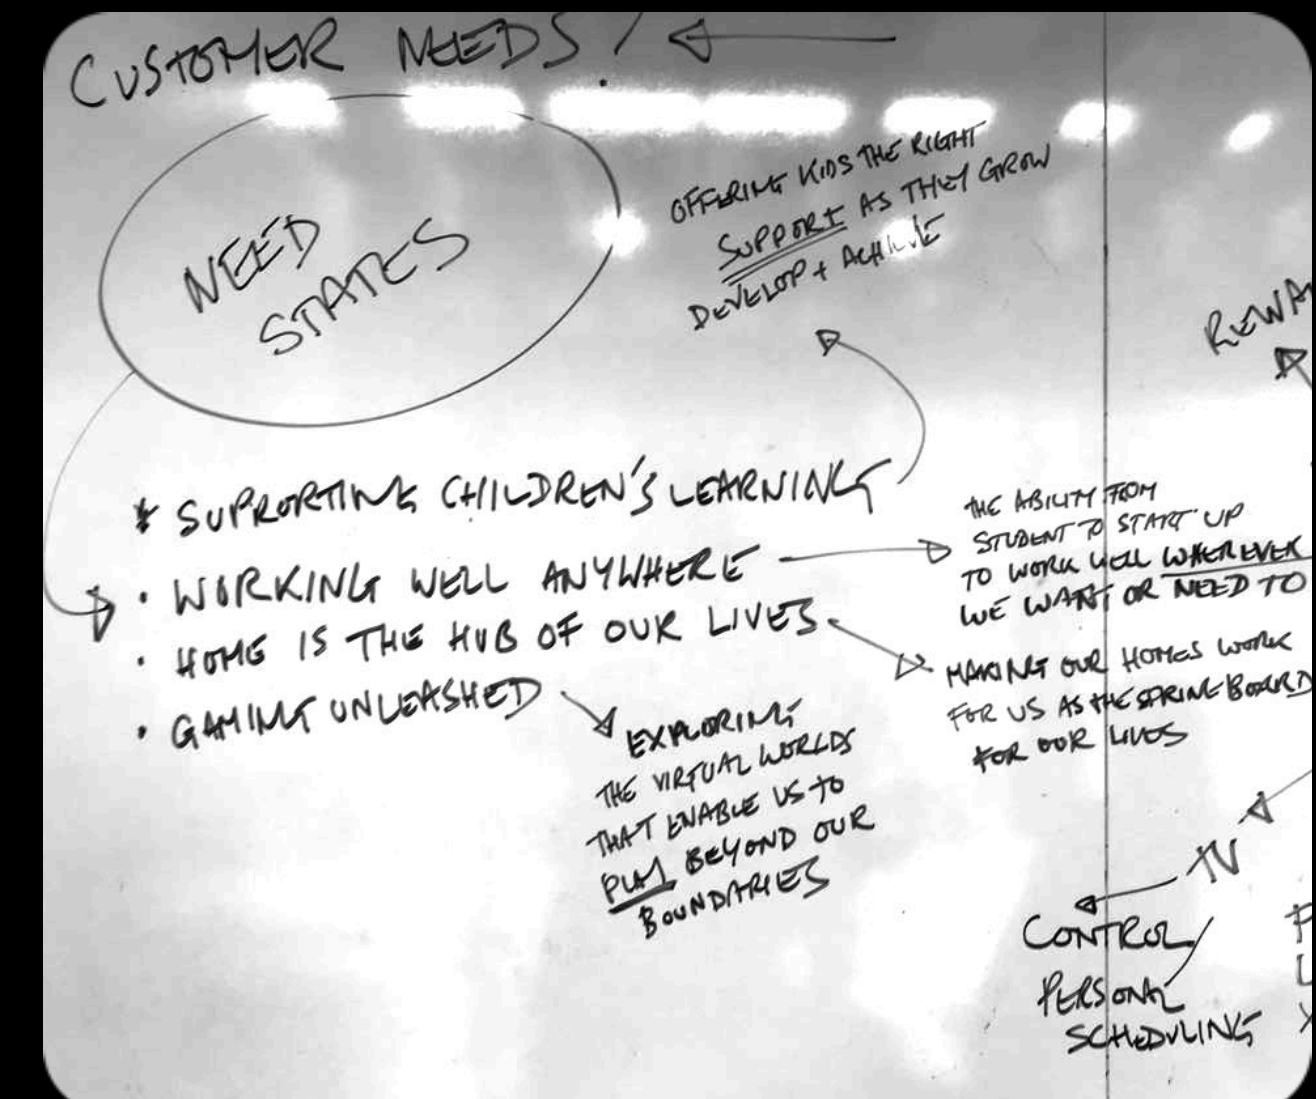 CUSTOMER NEEDS!
NEED
STATES
OFFERING KIDS THE RIGHT
SUPPORT AS THEY GROW
DEVELOP + ACHIEVE
REWA
* SUPPORTING CHILDREN'S LEARNING
· WORKING WELL ANYWHERE
· HOME IS THE HUB OF OUR LIVES
· GAMING UNLEASHED
THE ABILITY FROM
STUDENT TO START UP
TO WORK WELL WHEREVER
WE WANT OR NEED TO
MAKING OUR HOMES WORK
FOR US AS THE SPRINGBOARD
FOR OUR LIVES
EXPLORING
THE VIRTUAL WORLDS
THAT ENABLE US TO
PLAY BEYOND OUR
BOUNDARIES
TV
CONTROL/
PERSONAL
SCHEDULING